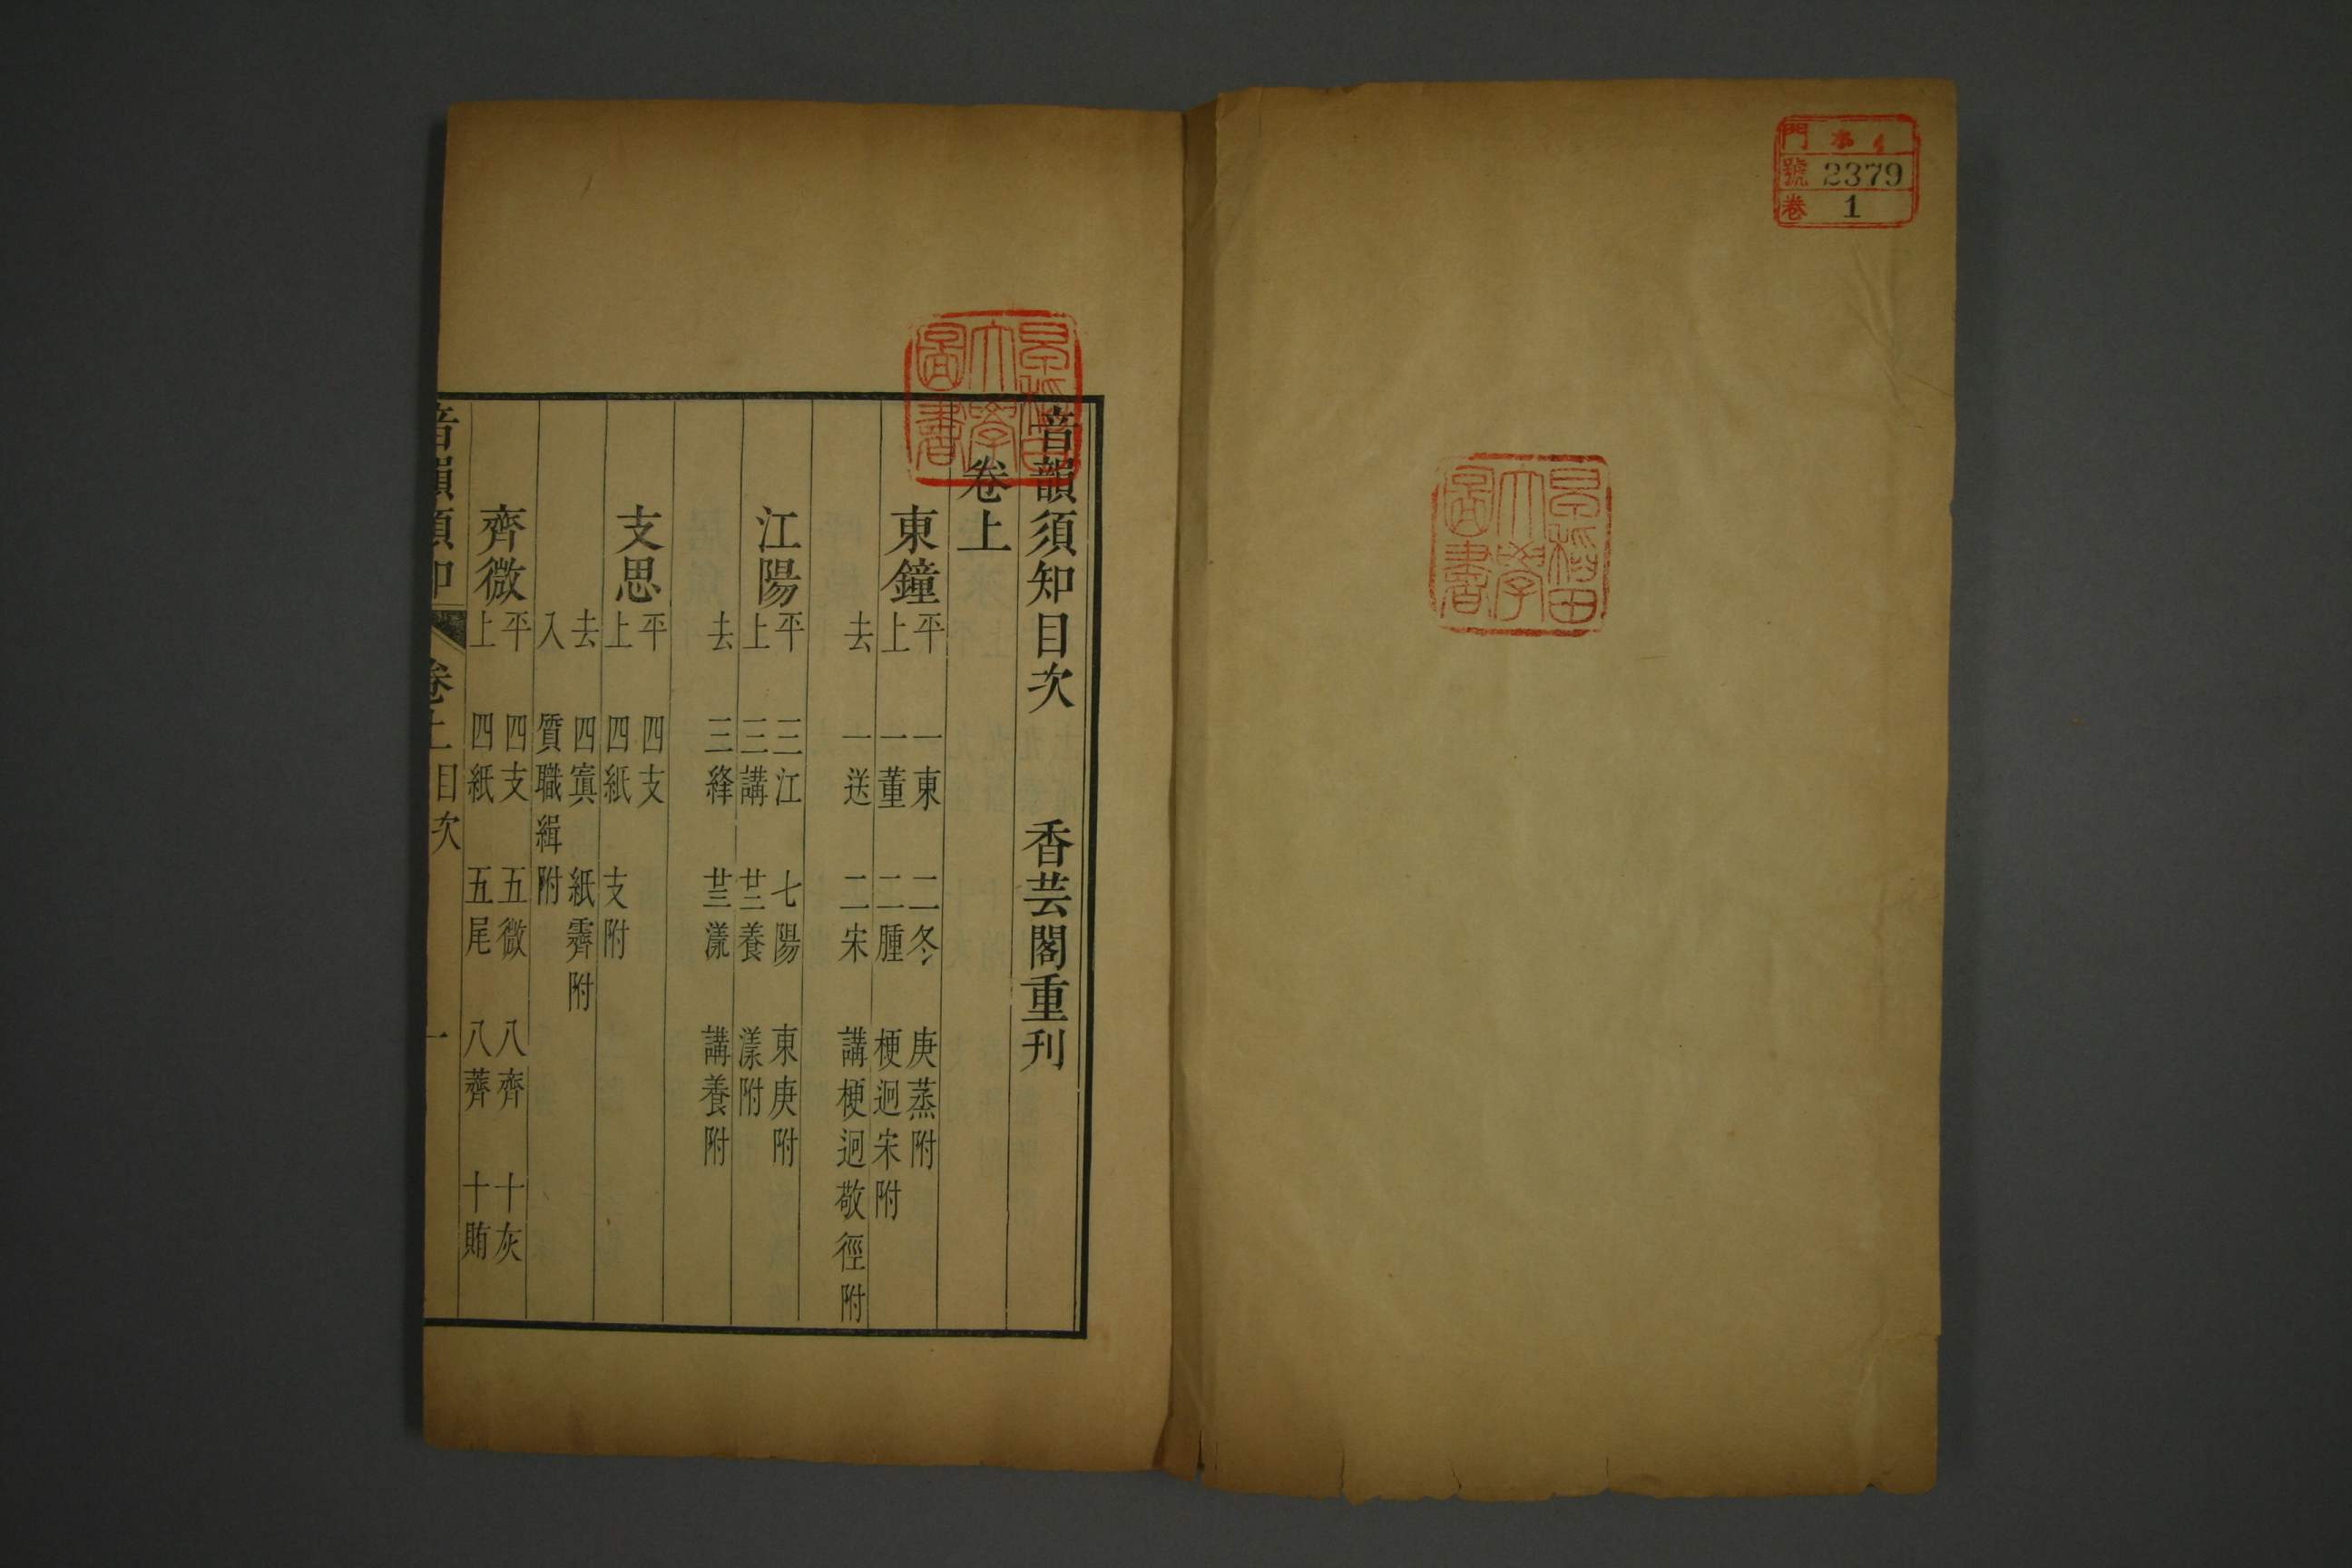 門
號 2379
卷 1
早稻田大學圖書
早稻田大學圖書
音韻須知目次 香芸閣重刊
卷上
東鐘 平 一東 二冬 庚蒸附
上 一董 二腫 梗迥宋附
去 一送 二宋 講梗迥敬徑附
江陽 平 三江 七陽 東庚附
上 三講 廿二養 漾附
去 三絳 廿三漾 講養附
支思 平 四支
上 四紙 支附
去 四寘 紙霽附
入 質職緝附
齊微 平 四支 五微 八齊 十灰
上 四紙 五尾 八薺 十賄
音韻須知 卷上目次 一